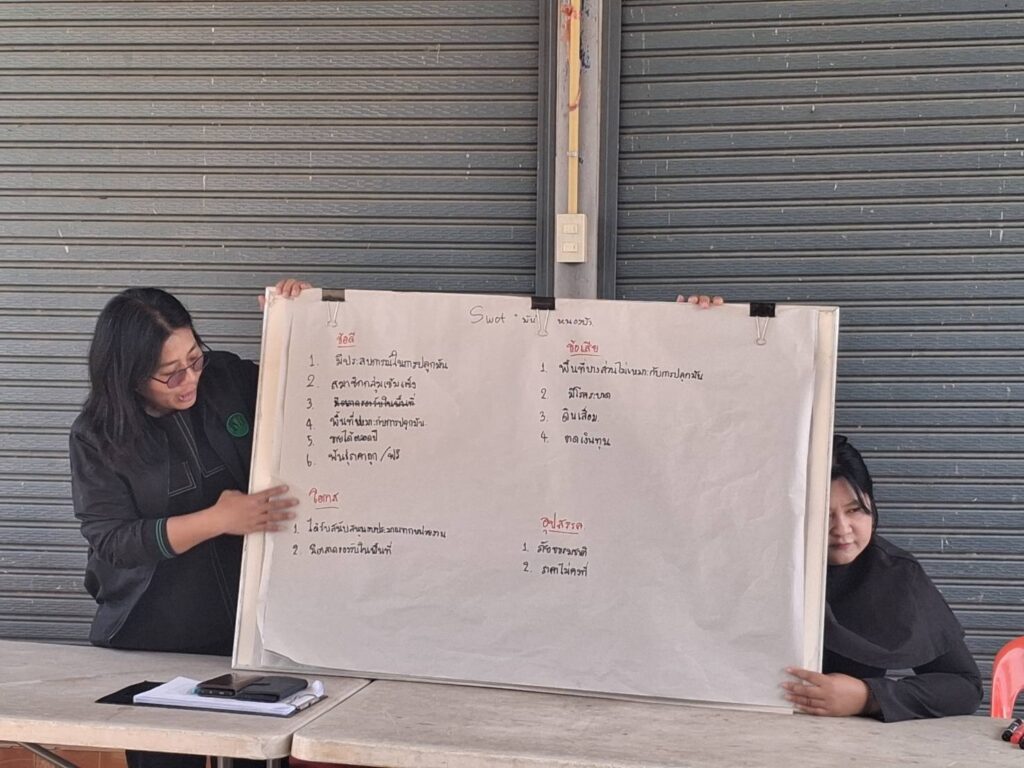 Swot มัน หนองบัว
ข้อดี
1. มีประสบการณ์ในการปลูกมัน
2. สมาชิกกลุ่มเข้มแข็ง
3. มีตลาดรองรับในพื้นที่
4. พื้นที่เหมาะกับการปลูกมัน
5. ขายได้ตลอดปี
6. พันธุ์ราคาถูก/ฟรี
ข้อเสีย
1. พื้นที่บางส่วนไม่เหมาะกับการปลูกมัน
2. มีโรคระบาด
3. ดินเสื่อม
4. ขาดเงินทุน
โอกาส
1. ได้รับสนับสนุนงบประมาณจากหน่วยงาน
2. มีตลาดรองรับในพื้นที่
อุปสรรค
1. ภัยธรรมชาติ
2. ราคาไม่คงที่